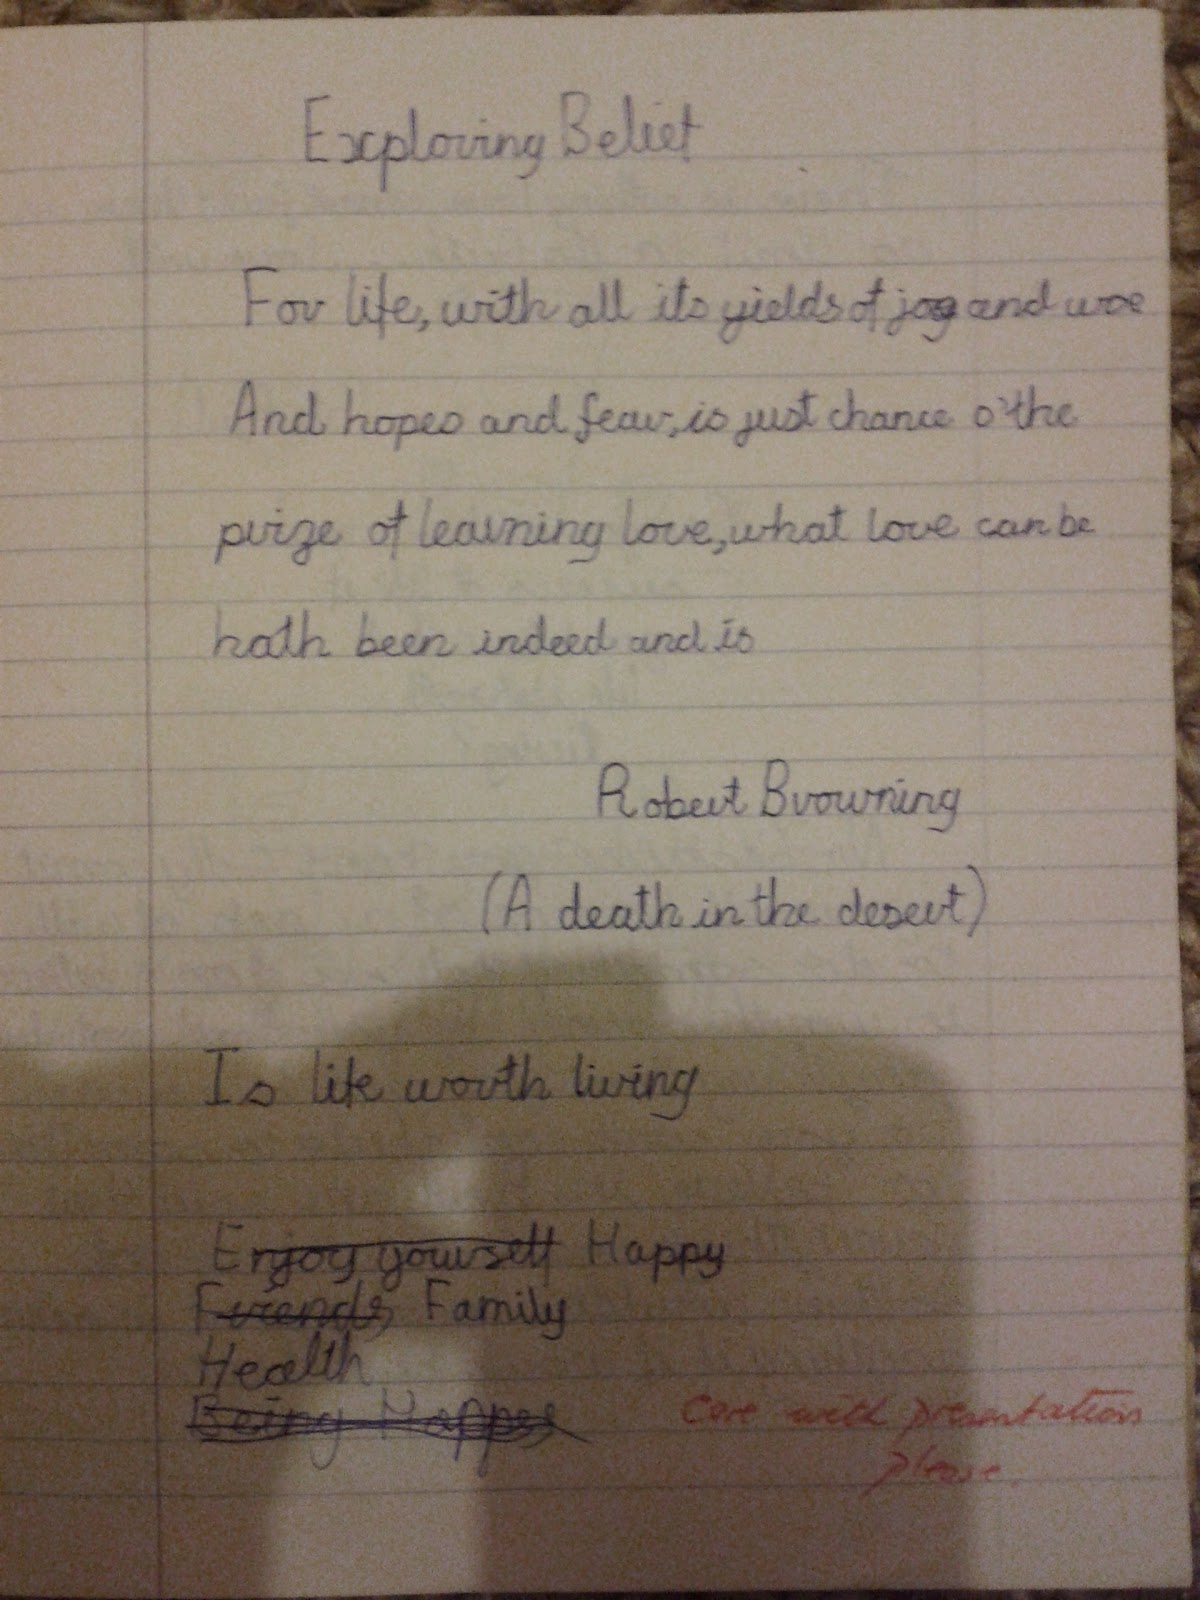 Exploring Belief
For life, with all its yields of joy and woe
And hopes and fear, is just chance o'the
prize of learning love, what love can be
hath been indeed and is
Robert Browning
(A death in the desert)
Is life worth living
Enjoy yourself Happy
Friends, Family
Health
Being Happy
Care with presentation
please.